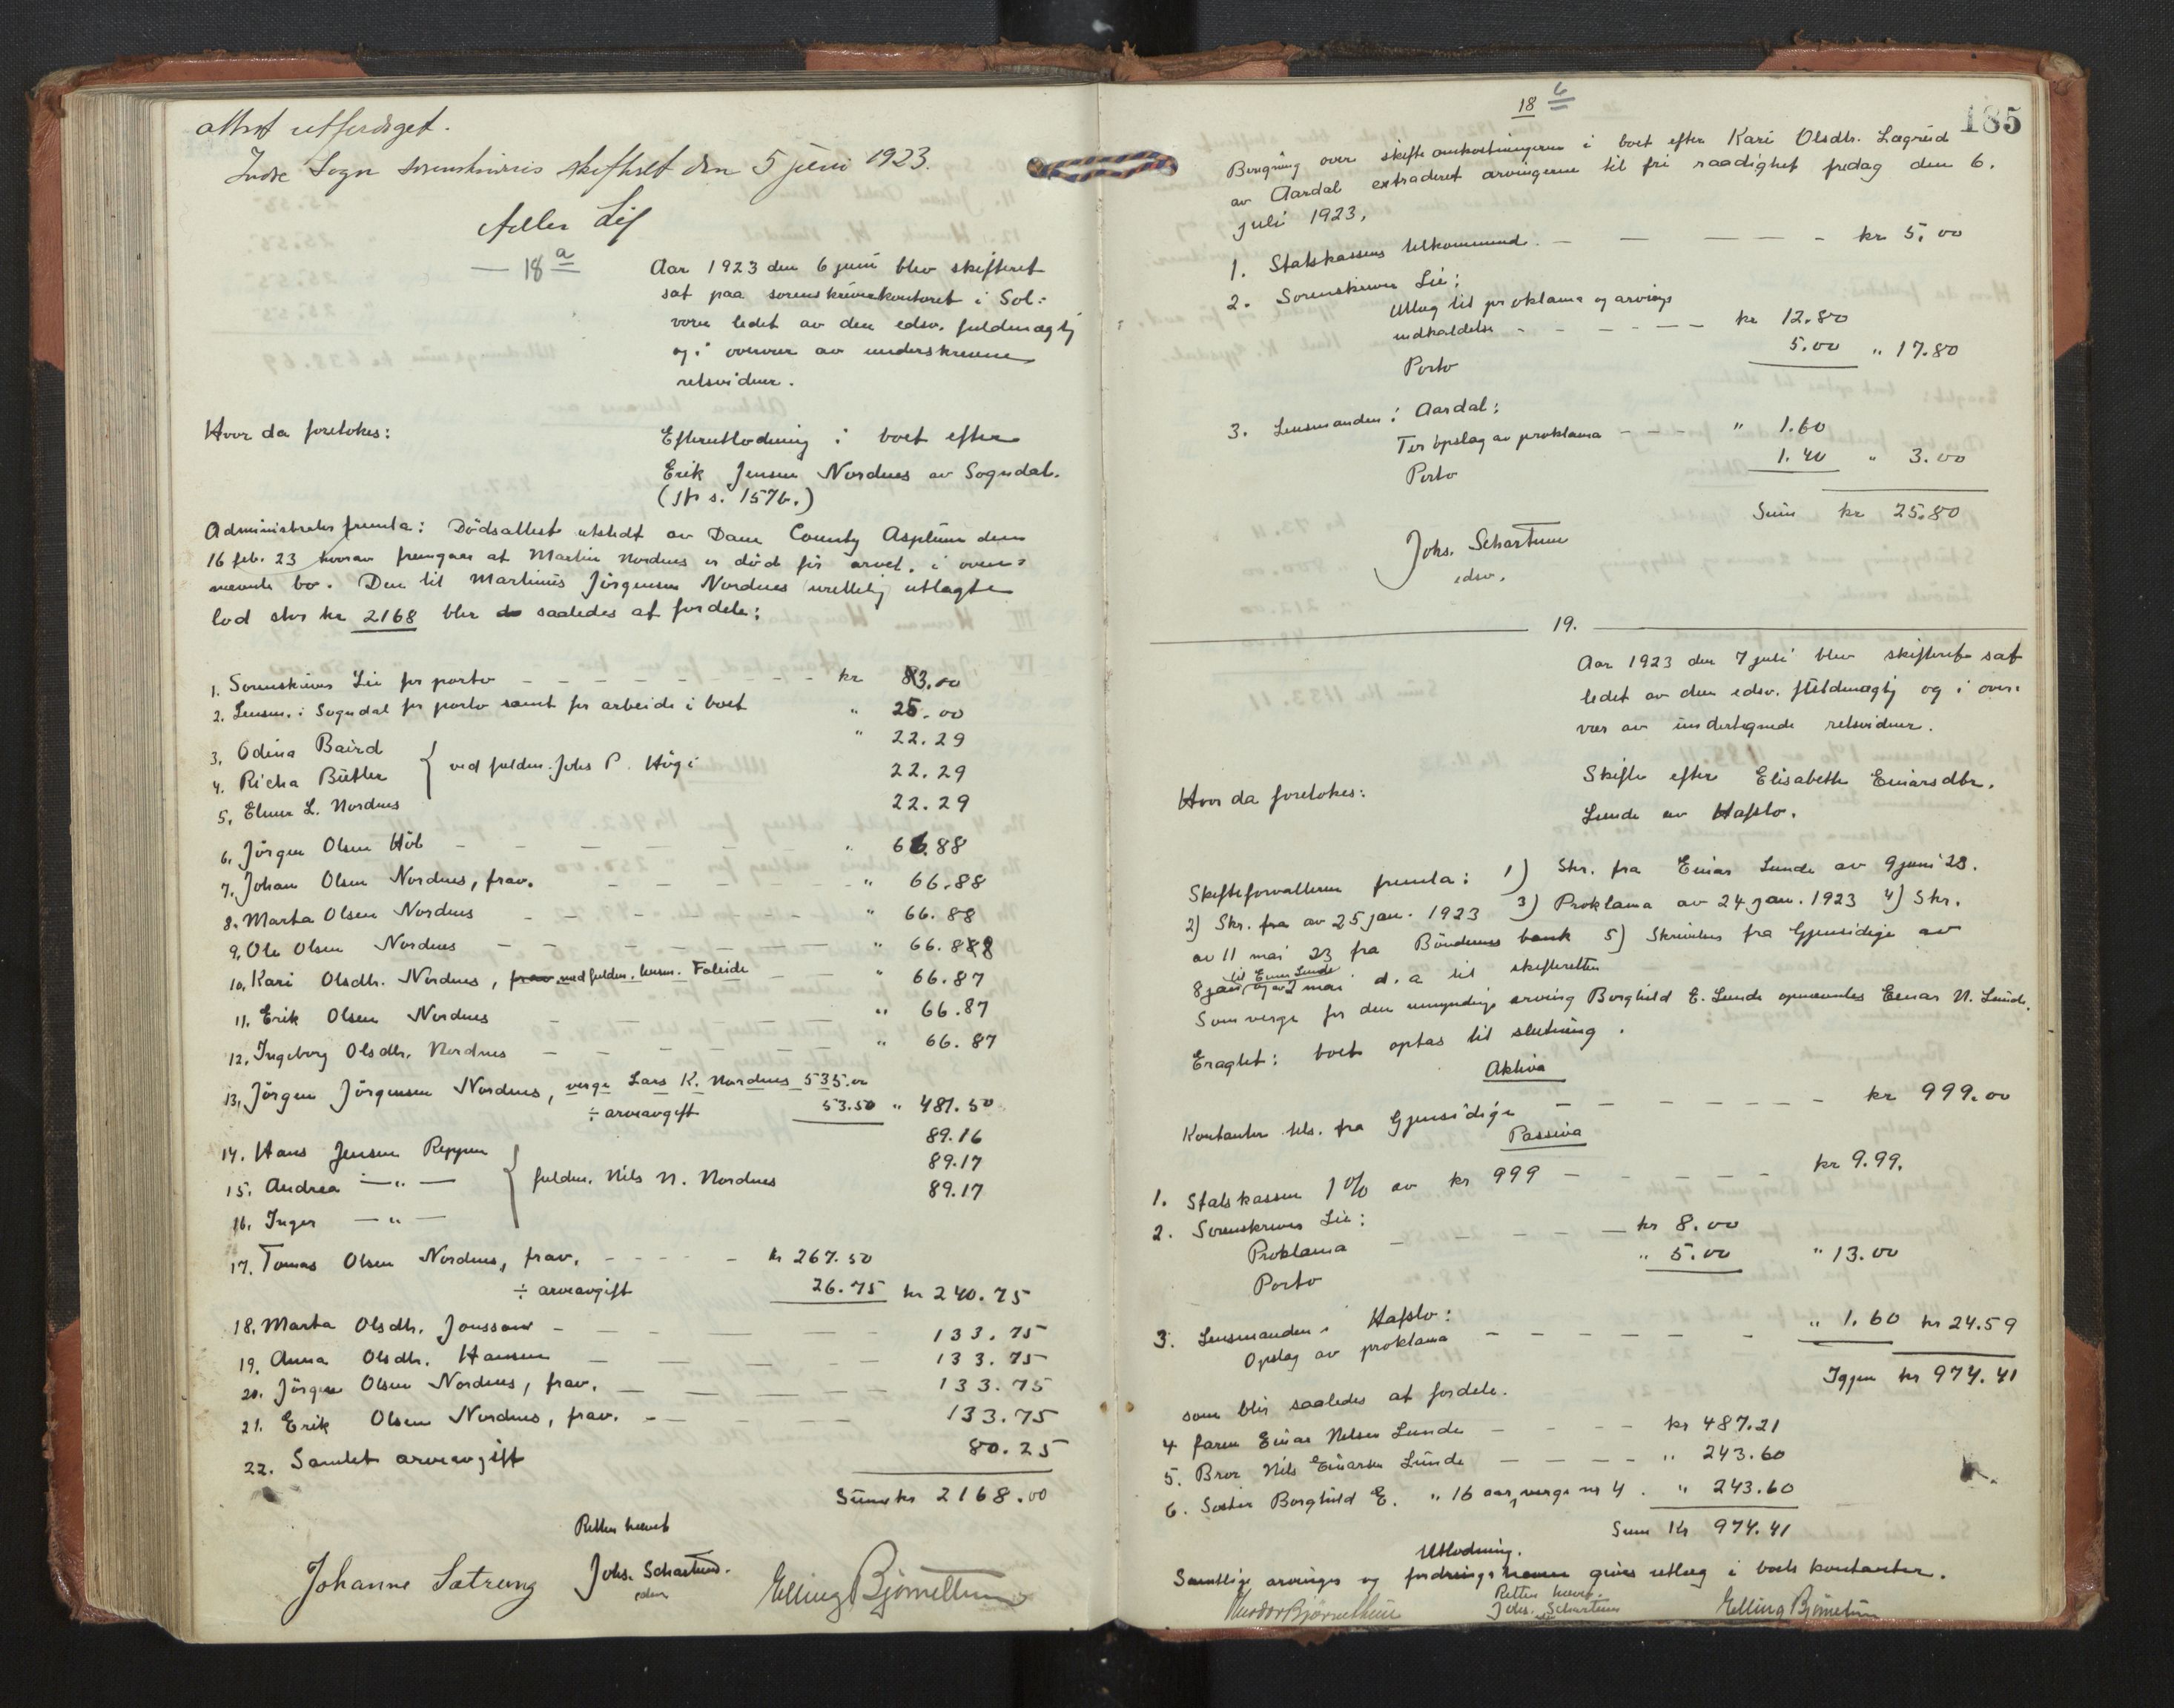 attest utferdiget.
Indre Sogn sorenskriveris skifteret den 5 juni 1923.
Atler Lie
— 18 a
Aar 1923 den 6 juni blev skifteret
sat paa sorenskriverkontoret i Sol=
vorn ledet av den edsv. fuldmægtig
og i overvær av underskrevne
retsvidner.
Hvor da foretokes:
Efterutlodning i boet efter
Erik Jensen Nordnes av Sogndal.
(Jfr s. 157b.)
Administrator fremla: Dödsattest utstedt av Dane County Asylum den
16 feb. 23 hvorav fremgaar at Martin Nordnes er död før arvel. i oven=
nævnte bo. Den til Martinus Jörgensen Nordnes urettelig utlagte
lod stor kr 2168 blir saaledes at fordele:
1. Sorenskriver Lie for porto — — — — kr 3.00
2. Lensm. i Sogndal for porto samt for arbeide i boet " 25.00
3. Odina Baird " 22.29
4. Richa Butler } ved fuldm. Johs P. Högi 22.29
5. Elmer L. Nordnes 22.29
6. Jörgen Olsen Höl — — — " 66.88
7. Johan Olsen Nordnes, frav. — — — " 66.88
8. Marta Olsen Nordnes — — — " 66.88
9. Ole Olsen Nordnes — — — " 66.88
10. Kari Olsdtr. Nordnes, frav. ved fuldm. lensm. Faleide — " 66.87
11. Erik Olsen Nordnes — — — " 66.87
12. Ingeborg Olsdtr. Nordnes — — — " 66.87
13. Jörgen Jörgensen Nordnes, verge Lars K. Nordnes 535.00
÷ arveavgift 53.50 " 481.50
14. Hans Jensen Reppen 89.16
15. Andrea — " — } fuldm. Nils N. Nordnes 89.17
16. Inger — " — 89.17
17. Tomas Olsen Nordnes, frav. — — — kr 267.50
÷ arveavgift 26.75 kr 240.75
18. Marta Olsdtr. Jonsson — — — 133.75
19. Anna Olsdtr. Hansen — — — 133.75
20. Jörgen Olsen Nordnes, frav. — — — 133.75
21. Erik Olsen Nordnes, frav. — — — 133.75
22. Samlet arveavgift 80.25
Sum kr 2168.00
Retten hævet
Johanne Sætrang Johs. Schartum. Elling Bjørnetun
edsv
18 b
185
Beregning over skifteomkostningerne i boet efter Kari Olsdtr. Lægreid
av Aardal extraderet arvingerne til fri raadighet fredag den 6.
juli 1923.
1. Statskassens tilkommende. — — — — kr 5.00
2. Sorenskriver Lie:
Utlæg til proklama og arvings
indkaldelse — — — kr 12.80
Porto 5.00 " 17.80
3. Lensmanden i Aardal:
For opslag av proklama — — — " 1.60
Porto 1.40 " 3.00
Sum kr 25.80
Johs. Schartum
edsv.
19.
Aar 1923 den 7 juli blev skifteret sat
ledet av den edsv. fuldmægtig og i over=
vær av undertegnede retsvidner.
Hvor da foretokes:
Skifte efter Elisabeth Einarsdtr.
Lunde av Hafslo.
Skifteforvalteren fremla: 1) Skr. fra Einar Lunde av 9 juni 23.
2) Skr. fra av 25 jan. 1923 3) Proklama av 24 jan. 1923 4) Skr.
av 11 mai 23 fra Böndernes bank 5) Skrivelse fra Gjensidige av
til Einar Lunde
8 jan. og av 2 mai d. a til skifteretten
Som verge for den umyndige arving Borghild E. Lunde opnævntes Einar N. Lunde.
Eragtet: boet optas til slutning.
Aktiva
Kontanter tils. fra Gjensidige — — — — kr 999.00
Passiva
1. Statskassen 1 % av kr 999 — — — — kr 9.99.
2. Sorenskriver Lie:
Proklama — — — — kr 8.00
Porto " 5.00 " 13.00
3. Lensmanden i Hafslo:
Opslag av proklama — — — — " 1.60 kr 24.59
Igjen kr 974.41
som blir saaledes at fordele.
4 faren Einar Nilsen Lunde — — — kr 487.21
5. Bror Nils Einarsen Lunde — — — " 243.60
6. Søster Borghild E. " 16 aar, verge nr 4. " 243.60
Sum Kr 974.41
Utlodning.
Samtlige arvinger og fordringshavere gives utlæg i boets kontanter.
Retten hævet.
Johs. Schartum Elling Bjørnetun